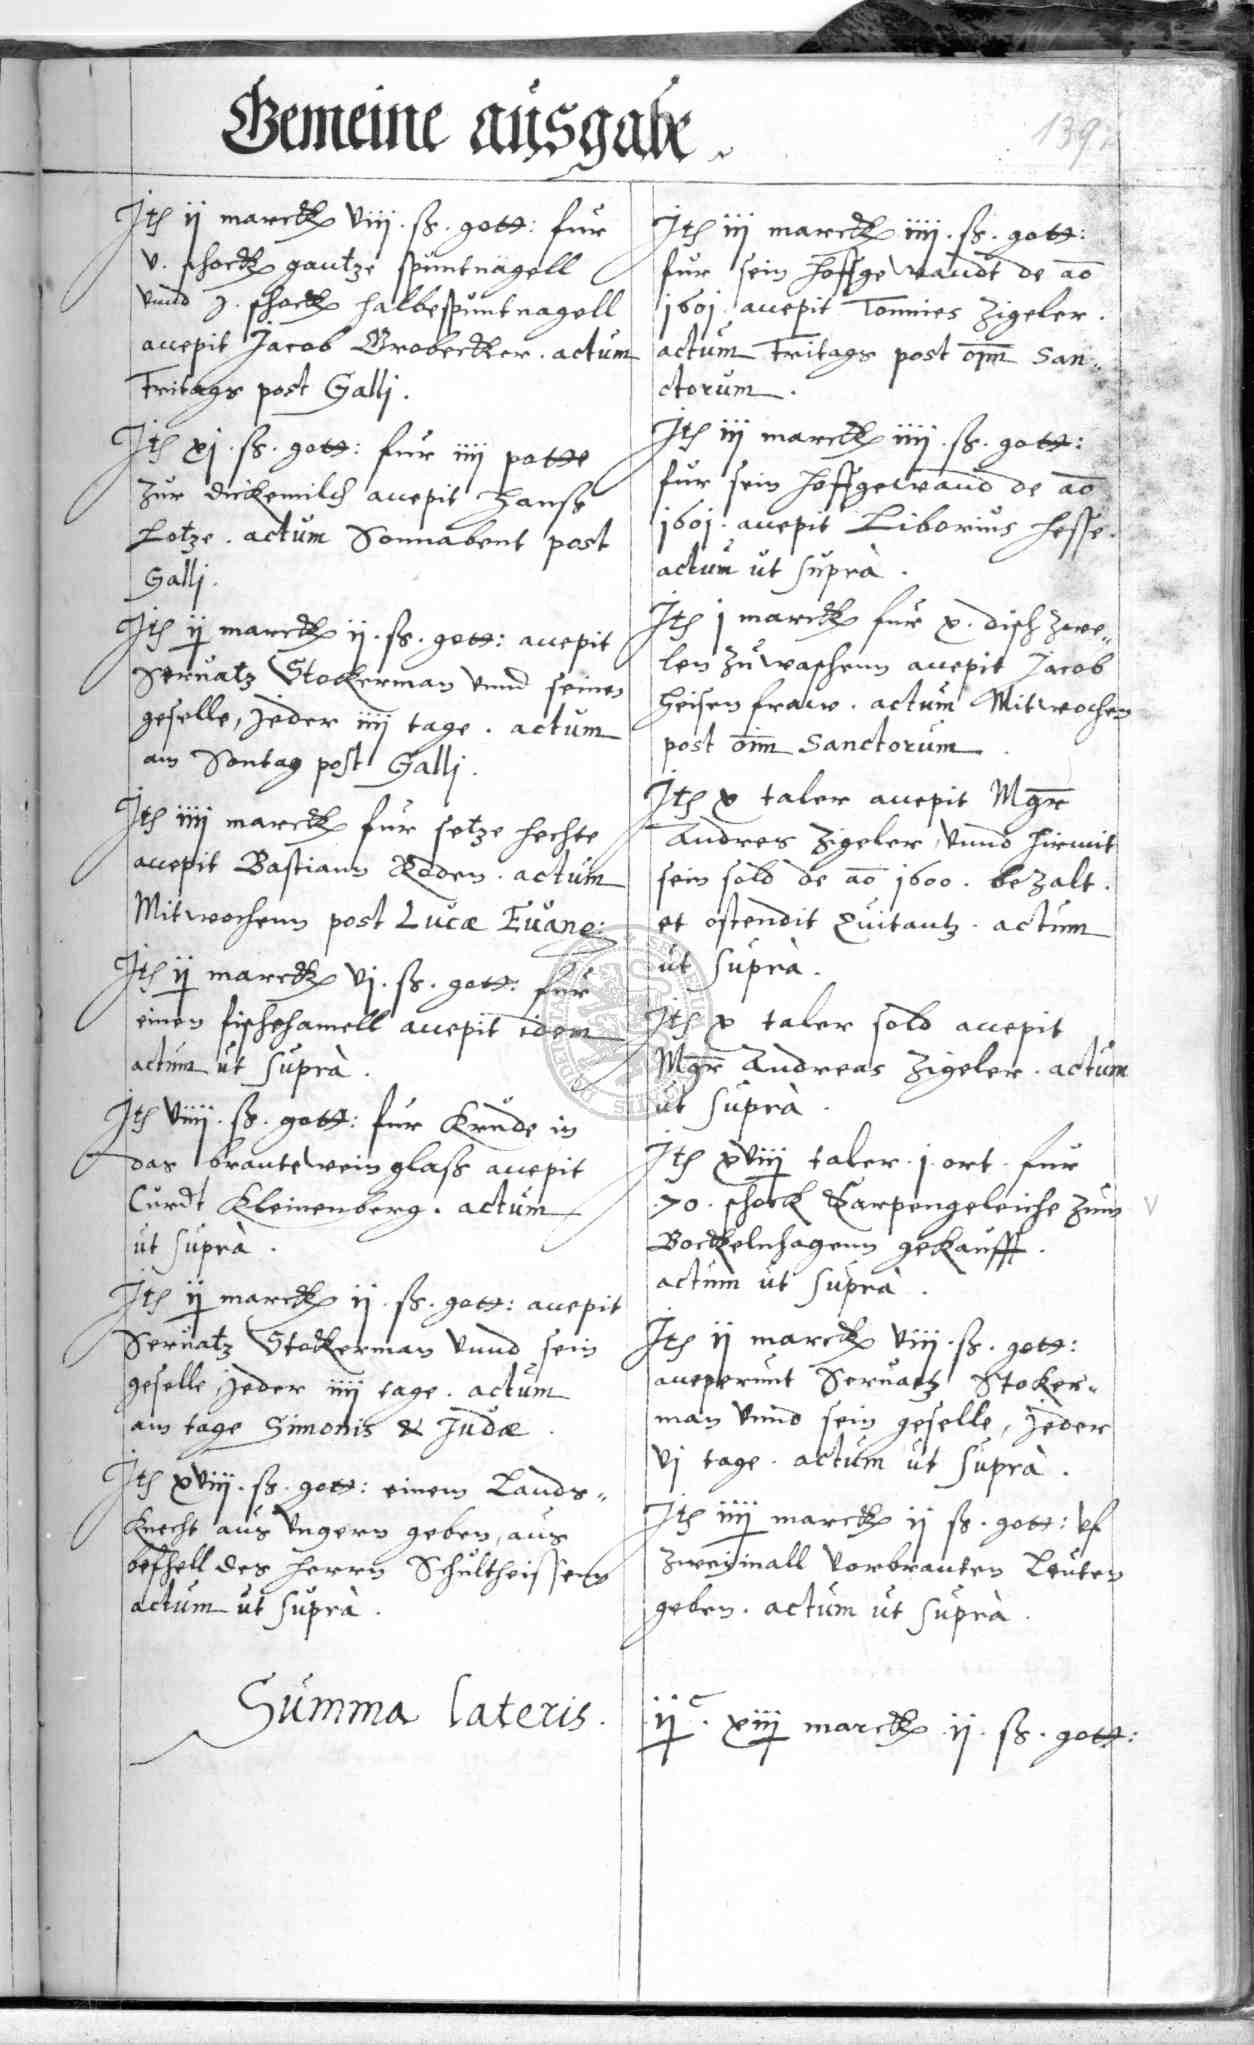 Gemeine ausgabe.
139
Itē ij marckē viij. ß. gott: fur
v. schockē gantze spuntnägell
vnnd j. schockē halbespuntnagell
accepit Jacob Brobecker. actum
Fritags post Galli.
Itē xj. ß. gott: fur iiij potte
zur dickemilch accepit Hanß
Lotze. actum Sonnabent post
Galli.
Itē ij marckē ij. ß. gott: accepit
Servatz Stockerman vnnd seinen
geselle, jeder iiij tage. actum
am Sontag post Galli.
Itē iiij marckē fur setze hechte
accepit Bastiann Roden. actum
Mitwochenn post Lucæ Euang:
Itē ij marckē vj. ß. gott: fur
einen fischehamell accepit idem
actum ut suprà.
Itē viiij. ß. gott: fur Krude in
das brantewein glaß accepit
Curdt Kleinenberg. actum
ut suprà.
Itē ij marckē ij. ß. gott: accepit
Servatz Stockerman vnnd sein
geselle, jeder iiij tage. actum
am tage Simonis & Judæ.
Itē xviij. ß. gott: einem Lands-
knecht aus Vngern geben, aus
befhell des herrn Schultheissenn
actum ut suprà.
Itē iij marckē iiij. ß. gott:
fur sein Hoffgewandt de aō
1601. accepit Tonnies Zigeler.
actum Fritags post oīm San-
ctorum.
Itē iij marckē iiij. ß. gott:
fur sein hoffgewand de aō
1601. accepit Liborius Hesse.
actum ut suprà.
Itē j marckē fur x. disch zwe-
len zu waschenn accepit Jacob
Heisen fraw. actum Mitwochen
post oīm Sanctorum.
Itē x taler accepit Mgr̄
Andres Zigeler, vnnd hirmit
sein sold de aō 1600. bezalt.
et ostendit Quitantz. actum
ut suprà.
Itē x taler sold accepit
Mgr̄ Andreas Zigeler. actum
ut suprà.
Itē xviij taler. j. ort. fur
.70. schock Karpengeleiche zum
Bockelnhagenn gekaufft.
actum ut suprà.
Itē ij marckē viij. ß. gott:
acceperunt Servatz Stoker-
man vnnd sein geselle, jeder
vj tage. actum ut suprà.
Itē iiij marckē ij ß. gott: vf
zweymall vorbranten Leuten
geben. actum ut suprà.
Summa lateris. ij c. xiij marckē .ij. ß. gott: